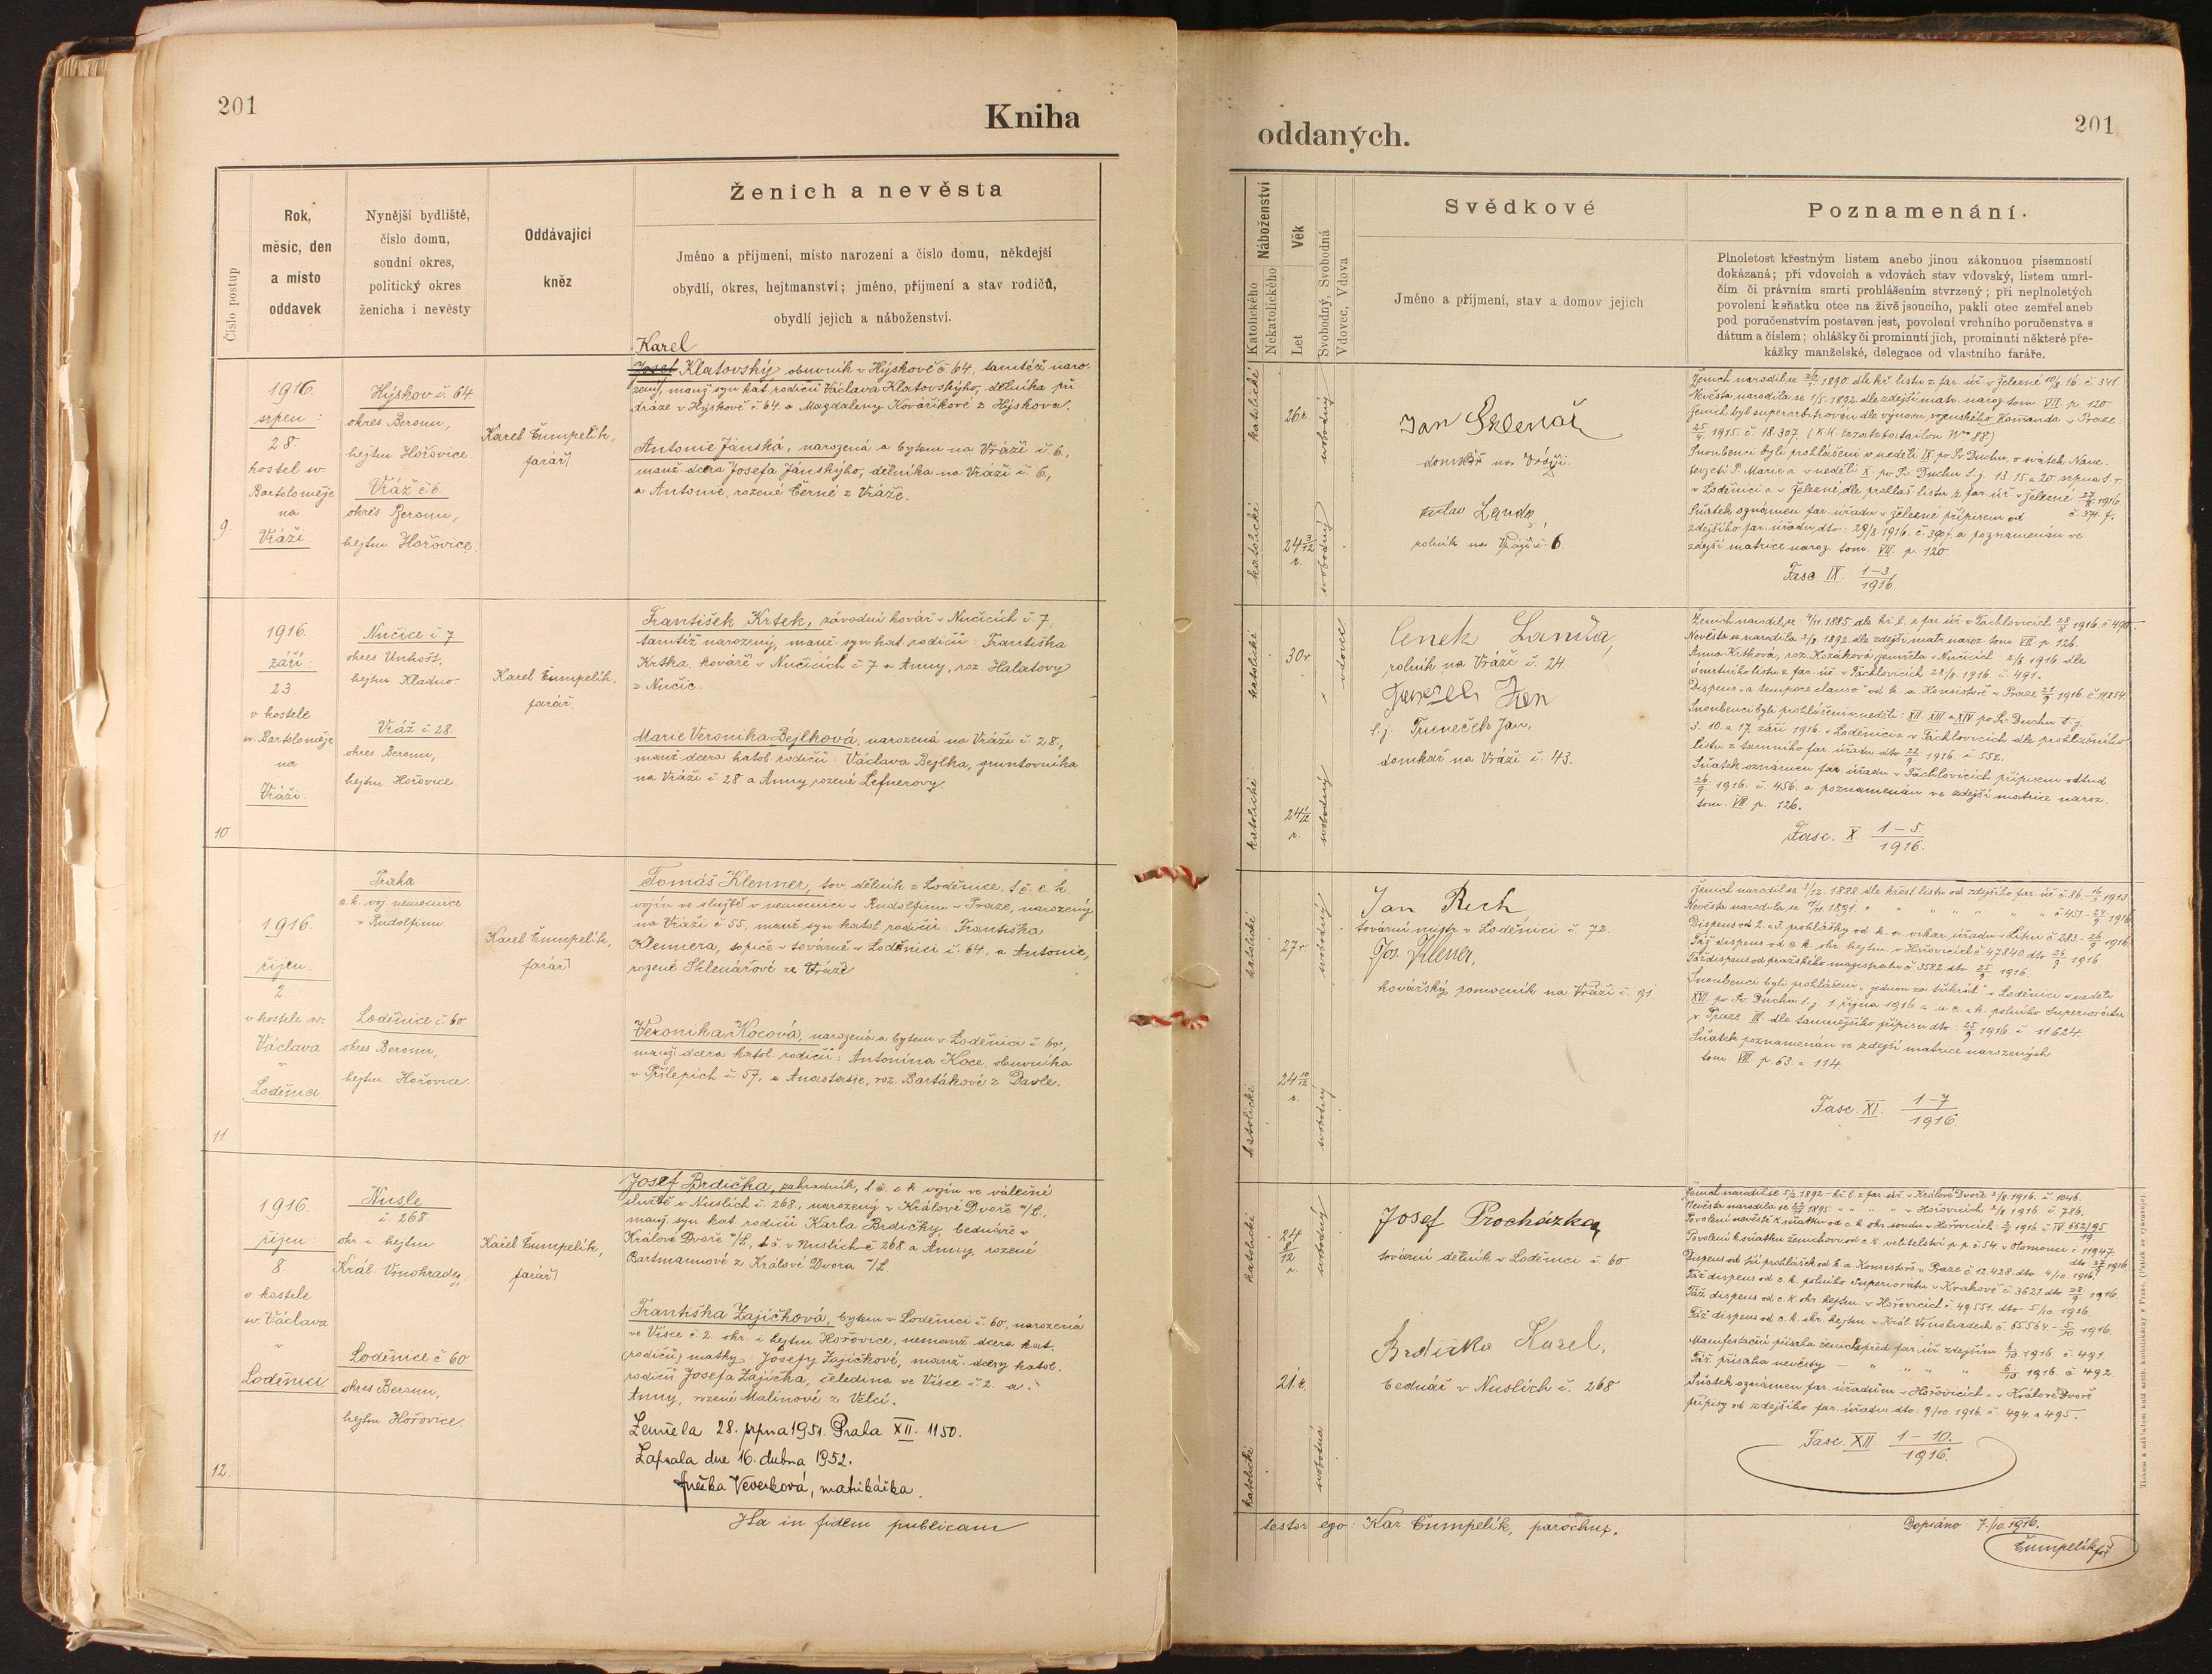 201
Kniha
Číslo postup
Rok,
měsíc, den
a místo
oddavek
Nynější bydliště,
číslo domu,
soudní okres,
politický okres
ženicha i nevěsty
Oddávající
kněz
Ženich a nevěsta
Jméno a příjmení, místo narození a číslo domu, někdejší
obydlí, okres, hejtmanství; jméno, příjmení a stav rodičů,
obydlí jejich a náboženství.
9.
1916.
srpen:
28.
kostel sv.
Bartoloměje
na
Vráži
Hýskov č. 64
okres Beroun,
hejtm. Hořovice.
Vráž č. 6.
okres Beroun,
hejtm. Hořovice.
Karel Čumpelík,
farář
Karel
Josef Klatovský, obuvník v Hýskově č. 64, tamtéž naro-
zený, manž. syn kat. rodičů Václava Klatovského, dělníka při
dráze v Hýskově č. 64 a Magdaleny Kovaříkové z Hýskova.
Antonie Jánská, narozená a bytem na Vráži č. 6,
manž. dcera Josefa Jánského, dělníka na Vráži č. 6,
a Antonie, rozené Černé z Vráže.
10
1916.
září:
23.
v kostele
sv. Bartoloměje
na
Vráži.
Nučice č. 7
okres Unhošt,
hejtm. Kladno
Vráž č. 28.
okres Beroun,
hejtm. Hořovice.
Karel Čumpelík,
farář.
František Krtek, závodní kovář v Nučicích č. 7,
tamtéž narozený, manž. syn kat. rodičů: Františka
Krtka, kováře v Nučicích č. 7 a Anny, roz. Halatovy
z Nučic.
Marie Veronika Bejlková, narozená na Vráži č. 28.,
manž. dcera katol. rodičů: Václava Bejlka, gruntovníka
na Vráži č. 28 a Anny rozené Lefnerovy.
11
1916.
říjen.
2
v kostele sv.
Václava
v
Loděnici
Praha
c. k. voj. nemocnice
v Rudolfinu
Loděnice č. 60
okres Beroun,
hejtm. Hořovice
Karel Čumpelík,
farář
Tomáš Klenner, tov. dělník z Loděnice, t. č. c. k.
vojín ve službě v nemocnici v Rudolfinu v Praze, narozený
na Vráži č. 55, manž. syn katol. rodičů: Františka
Klennera, topiče v továrně v Loděnici č. 64, a Antonie,
rozené Sklenářové ze Vráže
Veronika Kocová, narozená a bytem v Loděnici č. 60,
manž. dcera katol. rodičů: Antonína Koce, obuvníka
v Přílepích č. 57, a Anastasie, roz. Bartákové z Davle.
12.
1916.
říjen
8
v kostele
sv. Václava
v
Loděnici
Nusle
č. 268
okr. i hejtm
Král. Vinohrady
Loděnice č. 60
okres Beroun,
hejtm. Hořovice
Karel Čumpelík,
farář
Josef Brdička, zahradník, t. č. c. k. vojín ve válečné
službě v Nuslích č. 268, narozený v Králové Dvoře n/L.,
manž. syn kat. rodičů Karla Brdičky, bednáře v
Králové Dvoře n/L, t. č. v Nuslích č. 268 a Anny, rozené
Bartmannové z Králové Dvora n/L
Františka Zajíčková, bytem v Loděnici č. 60, narozená
ve Vísce č. 2. okr. i hejtm. Hořovice, nemanž. dcera kat.
(rodičů) matky: Josefy Zajíčkové, manž. dcery katol.
rodičů Josefa Zajíčka, čeledína ve Vísce č. 2. a
Anny, rozené Malinové z Velcí.
Zemřela 28. srpna 1951. Praha XII. 1150.
Zapsala dne 16. dubna 1952.
Anežka Veverková, matrikářka.
Ita in fidem publicam
oddaných.
201
Náboženství
Katolického
Nekatolického
Věk
Let
Svobodný, Svobodná
Vdovec, Vdova
Svědkové
Jméno a příjmení, stav a domov jejich
Poznamenání.
Plnoletost křestným listem anebo jinou zákonnou písemností
dokázaná; při vdovcích a vdovách stav vdovský, listem umrl-
čím či právním smrti prohlášením stvrzený; při neplnoletých
povolení k sňatku otce na živě jsoucího, pakli otec zemřel aneb
pod poručenstvím postaven jest, povolení vrchního poručenstva s
dátum a číslem; ohlášky či prominutí jich, prominutí některé pře-
kážky manželské, delegace od vlastního faráře.
katolické
26 r.
svobodný
katolické
24 3/12
r.
svobodný
Jan Sklenář
domkář na Vráži.
Landa,
rolník na Vráži č. 6
Ženich narodil se 1890. dle kř. listu z far. úř. v Železné 10/8 16. č. 341.
Nevěsta narodila se 1/5. 1892. dle zdejší matr. naroz. tom. VII. p. 120
Ženich byl superarbitrován dle výnosu vojenského Komanda v Praze:
1915. č. 18.307. (K. K. Erzatzbataillon No 88)
Snoubenci byli prohlášeni v neděli IX po Sv. Duchu, o svátek Nane-
bevzetí P. Marie a v neděli X. po Sv. Duchu t. j. 13. 15. a 20. srpna t. r.
v Loděnici a v Železné, dle prohláš. listu z far. úř. v Železné 27/8 1916.
č. 374 f.
Sňatek oznámen far. úřadu v Železné přípisem od
zdejšího far. úřadu, dto. 29/8. 1916. č. 390 f. a poznamenán ve
zdejší matrice naroz. tom. VII. p. 120
Fasc. IX. 1-3/1916
katolické
30 r
vdovec
katolické
24 1/12
r.
svobodný
Čeněk Landa,
rolník na Vráži č. 24.
t. j. Truneček Jan,
domkář na Vráži č. 43.
Ženich narodil se 4/11. 1885. dle kř. l. z far. úř. v Tachlovicích 28/8 1916. č. 490.
Nevěsta se narodila 3/8 1892. dle zdejší matr. naroz. tom. VII. p. 126.
Anna Krtková, roz. Kozáková, zemřela v Nučicích 2/6. 1916 dle
úmrtního listu z far. úř. v Tachlovicích 28/8. 1916. č. 491.
Dispens. „a tempore clauso" od k. a. Konsistoře v Praze 21/9 1916. č. 11.854.
Snoubenci byli prohlášeni v neděli: XII. XIII. a XIV. po Sv. Duchu t. j.
3. 10. a 17. září 1916. v Loděnici a v Tachlovicích dle prohláškního
listu z tamního far. úřadu dto 22/9 1916. č. 552.
Sňatek oznámen far. úřadu v Tachlovicích přípisem odtud
26/9. 1916. č. 456. a poznamenán ve zdejší matrice naroz.
tom. VII. p. 126.
Fasc. X 1-5/1916.
katolické
27 r
svobodný
katolické
24 10/12
r.
svobodný
Jan Rech
tovární mistr v Loděnici č. 72.
Jos. Klener,
kovářský pomocník na Vráži č. 91
Ženich narodil se 1888. dle křest. listu od zdejšího far. úř. č. 86.
Nevěsta narodila se 1891. č. 451 - 27/9 1916.
Dispens od 2. a 3. prohlášky od k. a. vikar. úřadu v Litni č. 283. - 26/9 1916.
Táž dispens od c. k. okr. hejtm. v Hořovicích č. 47840 dto 26/9 1916
Táž dispens od pražského magistrátu č. 3582. dto 25/9. 1916.
Snoubenci byli prohlášeni „jednou za třikrát" v Loděnici v neděli
XVI. po Sv. Duchu t. j. 1. října 1916. a u c. a k. polního Superiorátu
v Praze III dle tamnějšího přípisu dto 25/9 1916. č. 11624.
Sňatek poznamenán ve zdejší matrice narozených
tom. VII. p. 63. a 114
Fasc. XI. 1-7/1916.
katolické
24
8/12
r.
svobodný
katolické
21 r.
svobodná
Josef Procházka
tovární dělník v Loděnici č. 60
Brdička Karel,
bednář v Nuslích č. 268
Ženich narodil se 5/2 1892 - kř. l. z far. úř. v Králové Dvoře 1916. č. 1046.
Nevěsta narodila se 1895 v Hořovicích 1916. č. 786.
Povolení nevěstě k sňatku od c. k. okr. soudu v Hořovicích 1916. č. IV 662/95
19
Povolení k sňatku ženichovi od c. k. velitelství p. p. č. 54 v Olomouci č. 11947
dto 27/9 1916.
Dispens od tří prohlášek od k. a. Konsistoře v Praze č. 12.428. dto. 4/10 1916.
Táž dispens od c. k. polního Superiorátu v Krakově č. 3621 dto 28/9. 1916.
Táž dispens od c. k. okr. hejtm. v Hořovicích č. 49551. dto 5/10 1916.
Táž dispens od c. k. okr. hejtm. v Král. Vinohradech č. 65564. - 5/10 1916.
Manifestační přísaha ženicha před far. úř. zdejším 6/10 1916 č. 491.
Táž přísaha nevěsty — 6/10. 1916. č. 492.
Sňatek oznámen far. úřadům v Hořovicích a v Králové Dvoře
přípisy od zdejšího far. úřadu dto 9/10. 1916. č. 494. a 495.
Fasc. XII 1-10./1916.
testor ego Kar. Čumpelík, parochus.
Dopsáno 7./10. 1916.
Čumpelík, far